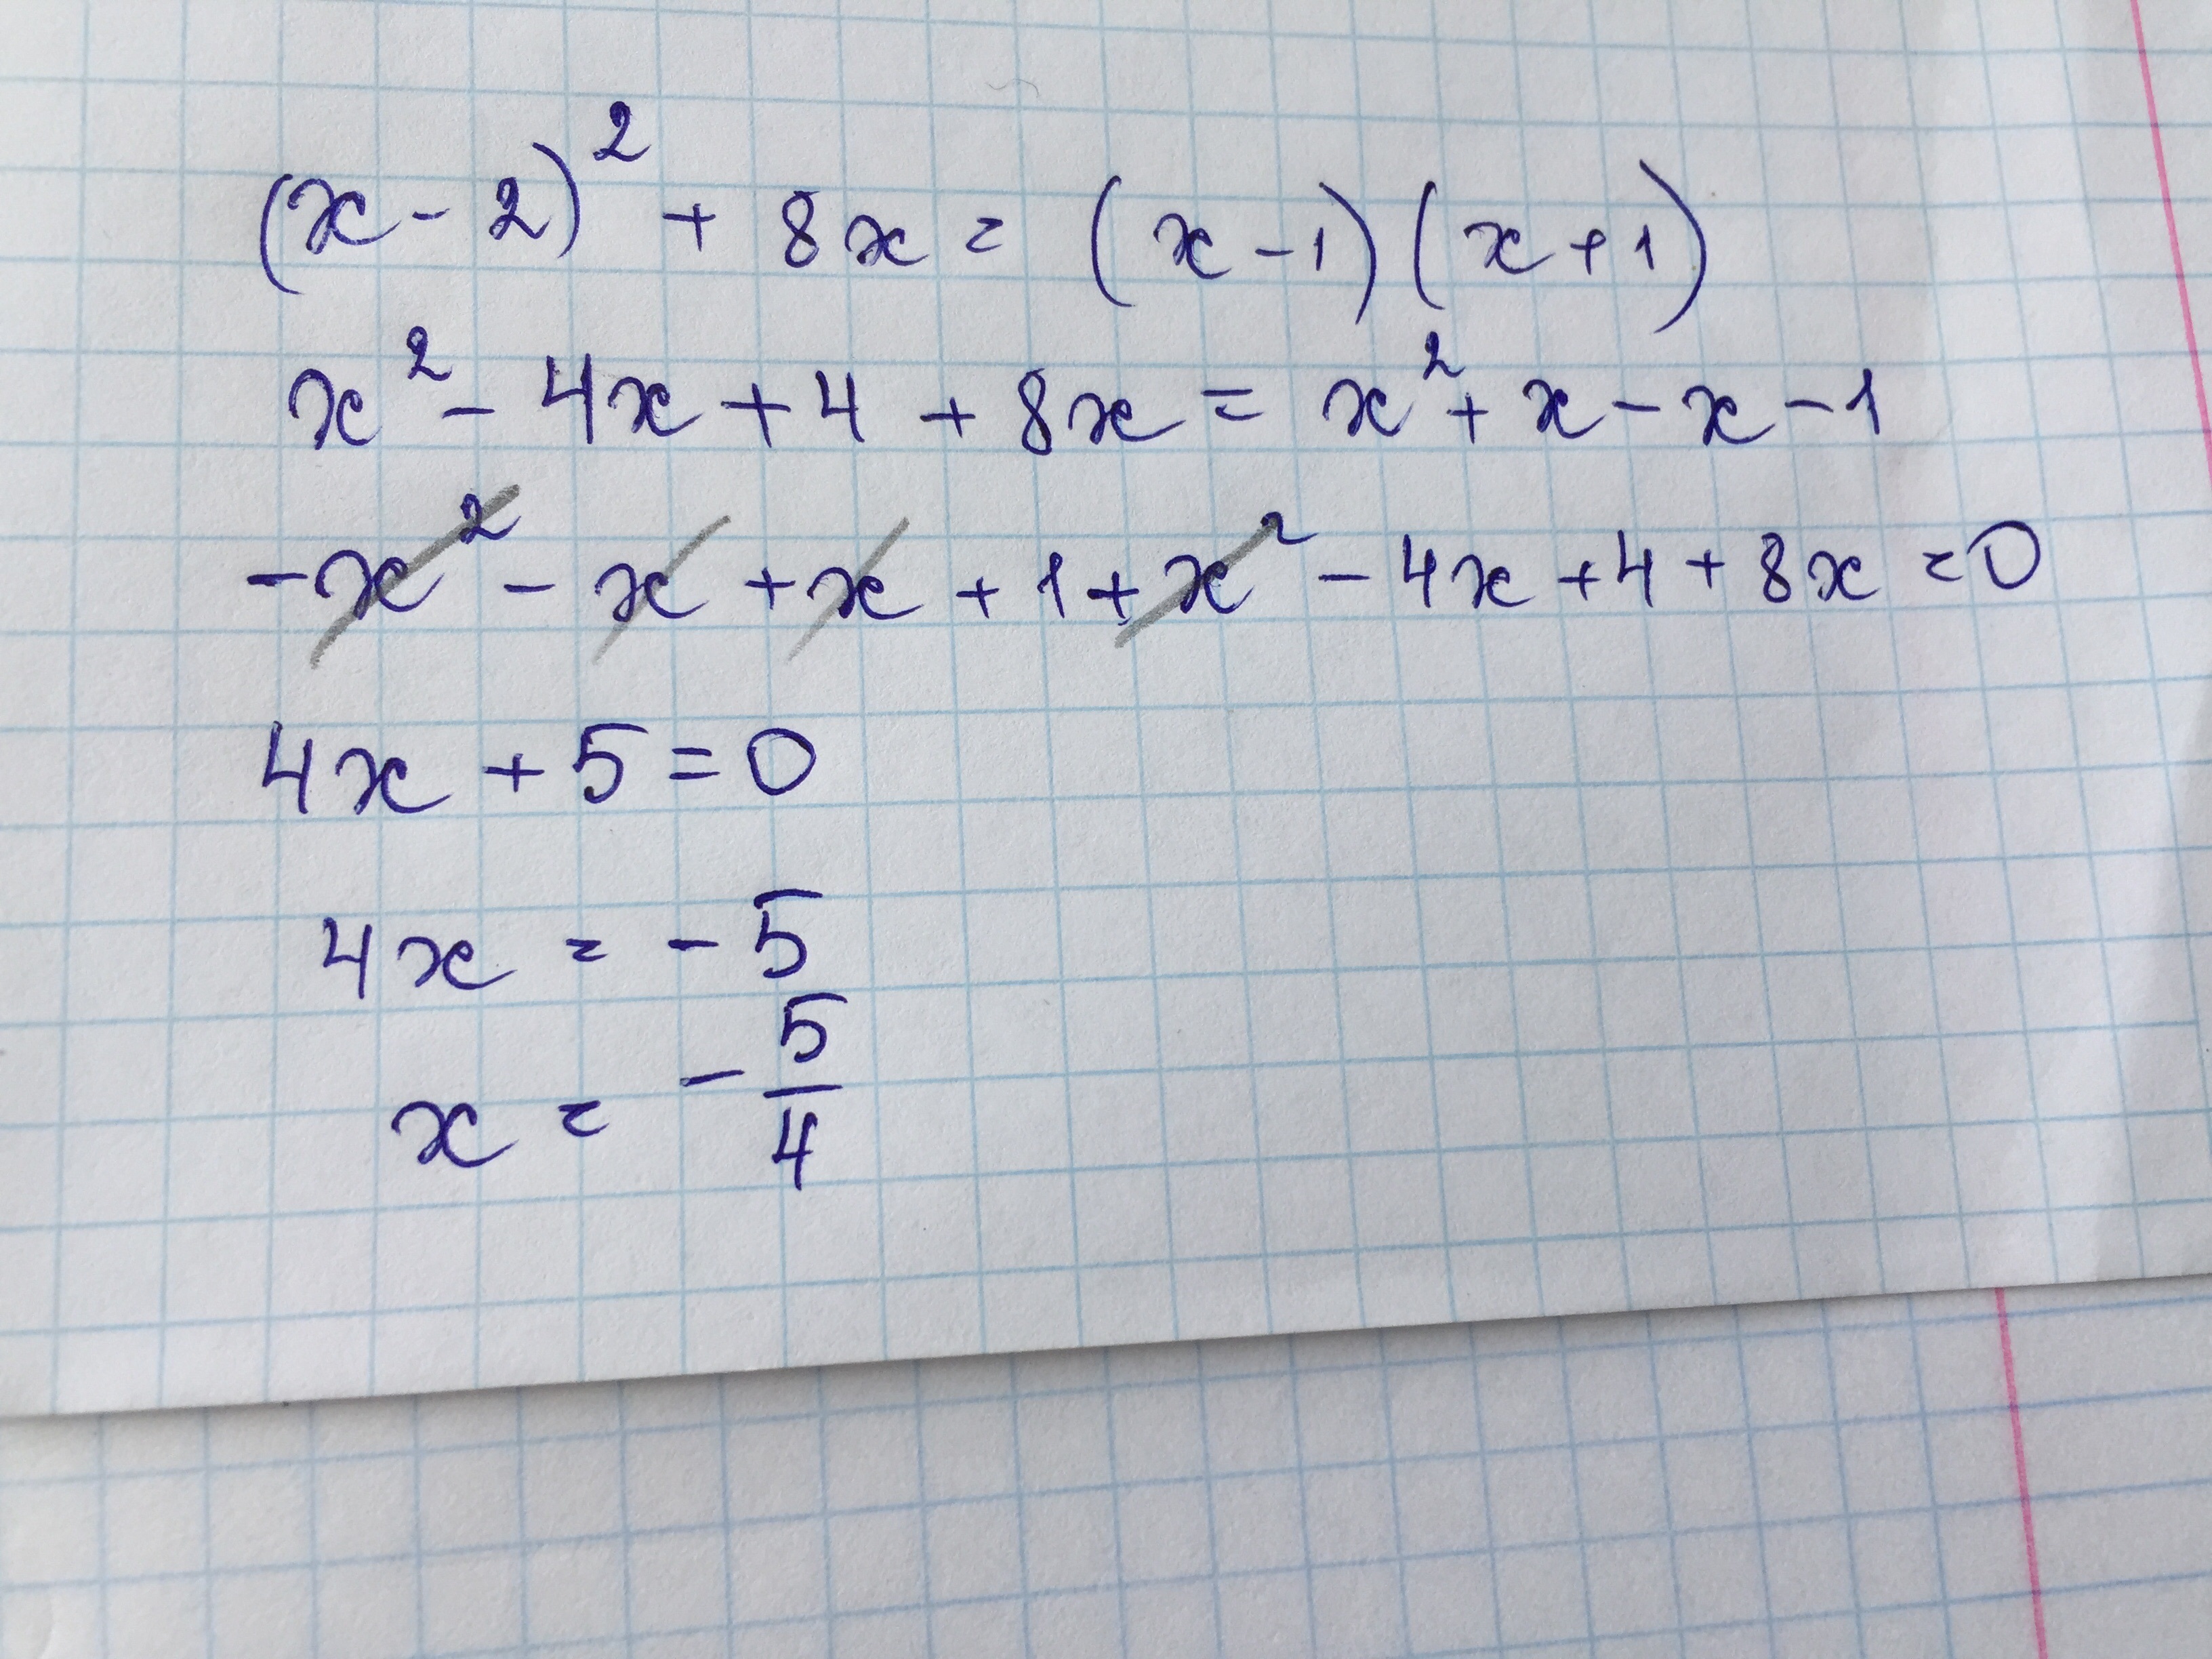 (x - 2)² + 8x = (x - 1)(x + 1)
x² - 4x + 4 + 8x = x² + x - x - 1
-x² - x + x + 1 + x² - 4x + 4 + 8x = 0
4x + 5 = 0
4x = - 5
x = - 5/4